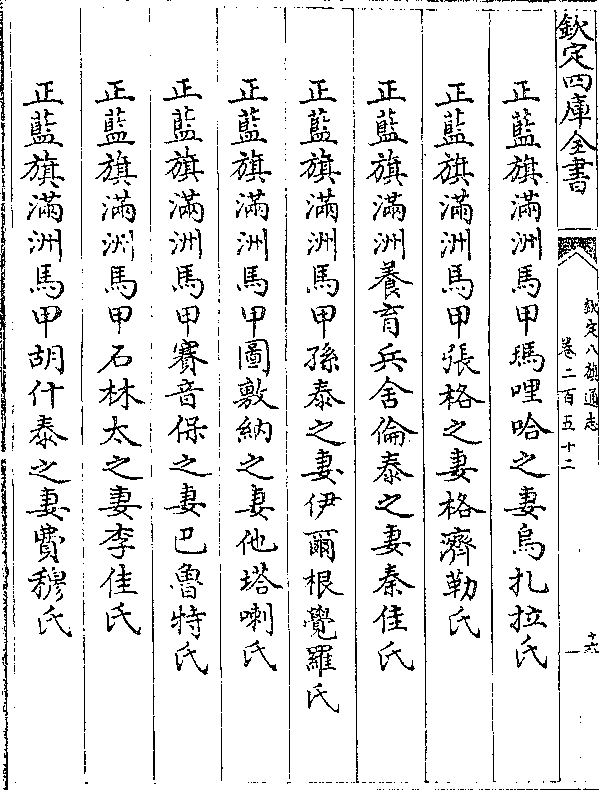 欽定四庫全書
欽定八旗通志
卷二百五十二
十六
正藍旗滿洲馬甲瑪哩哈之妻烏扎拉氏
正藍旗滿洲馬甲張格之妻格濟勒氏
正藍旗滿洲養育兵舍倫泰之妻秦佳氏
正藍旗滿洲馬甲孫泰之妻伊爾根覺羅氏
正藍旗滿洲馬甲圖敷納之妻他塔喇氏
正藍旗滿洲馬甲賽音保之妻巴魯特氏
正藍旗滿洲馬甲石林太之妻李佳氏
正藍旗滿洲馬甲胡什泰之妻費穆氏